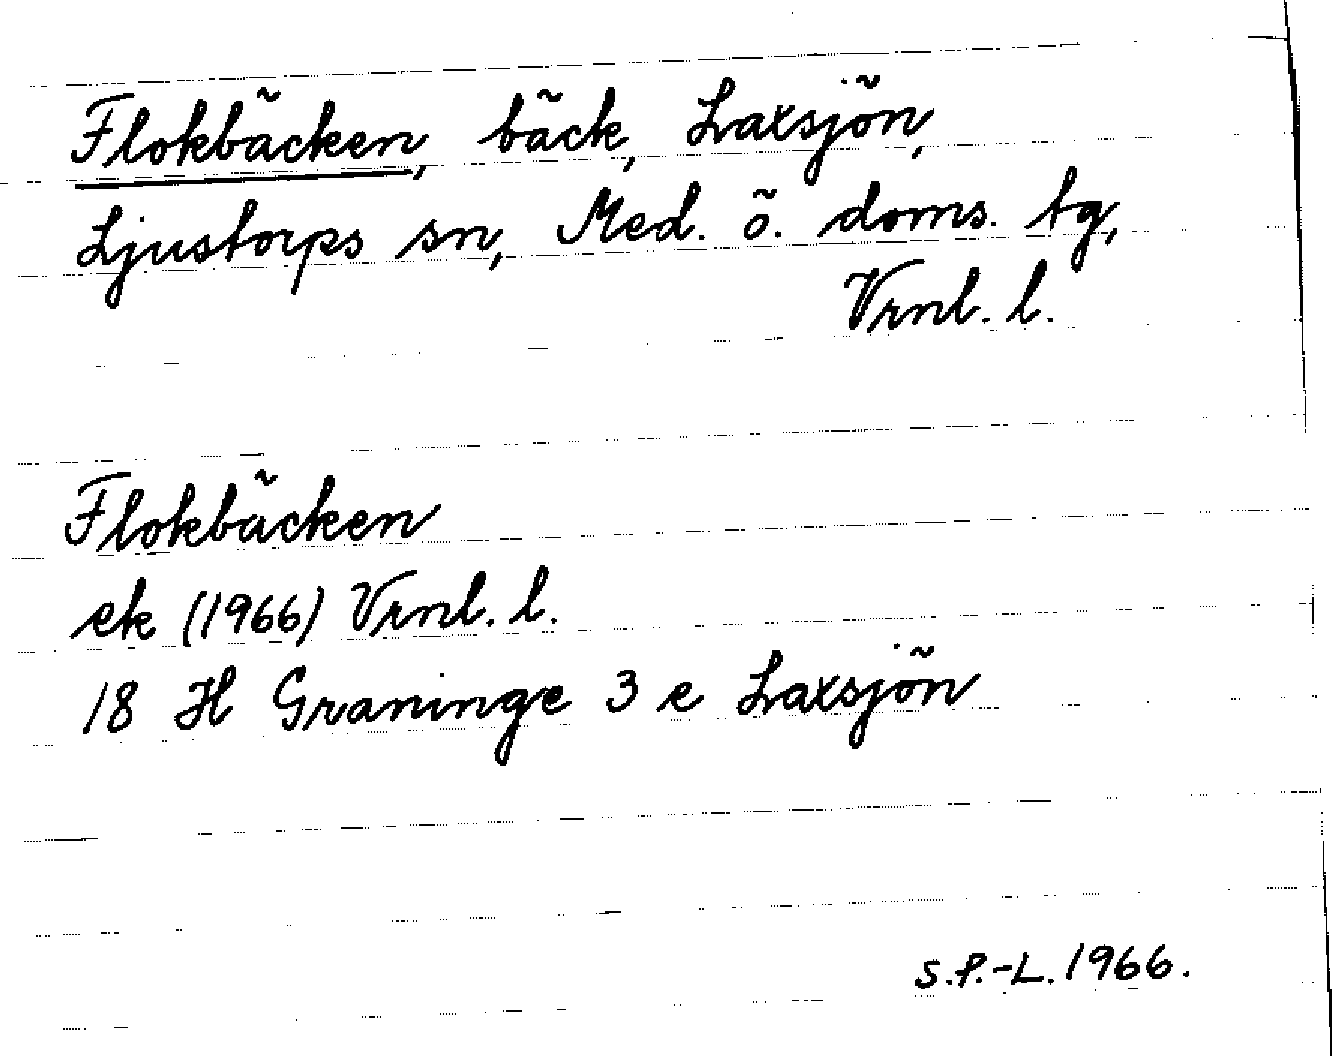 Flokbäcken, bäck, Laxsjön,
Ljustorps sn, Med. ö. doms. tg,
Vrnl. l.
Flokbäcken
ek (1966) Vrnl. l.
18 H Graninge 3 e Laxsjön
S.P.-L. 1966.